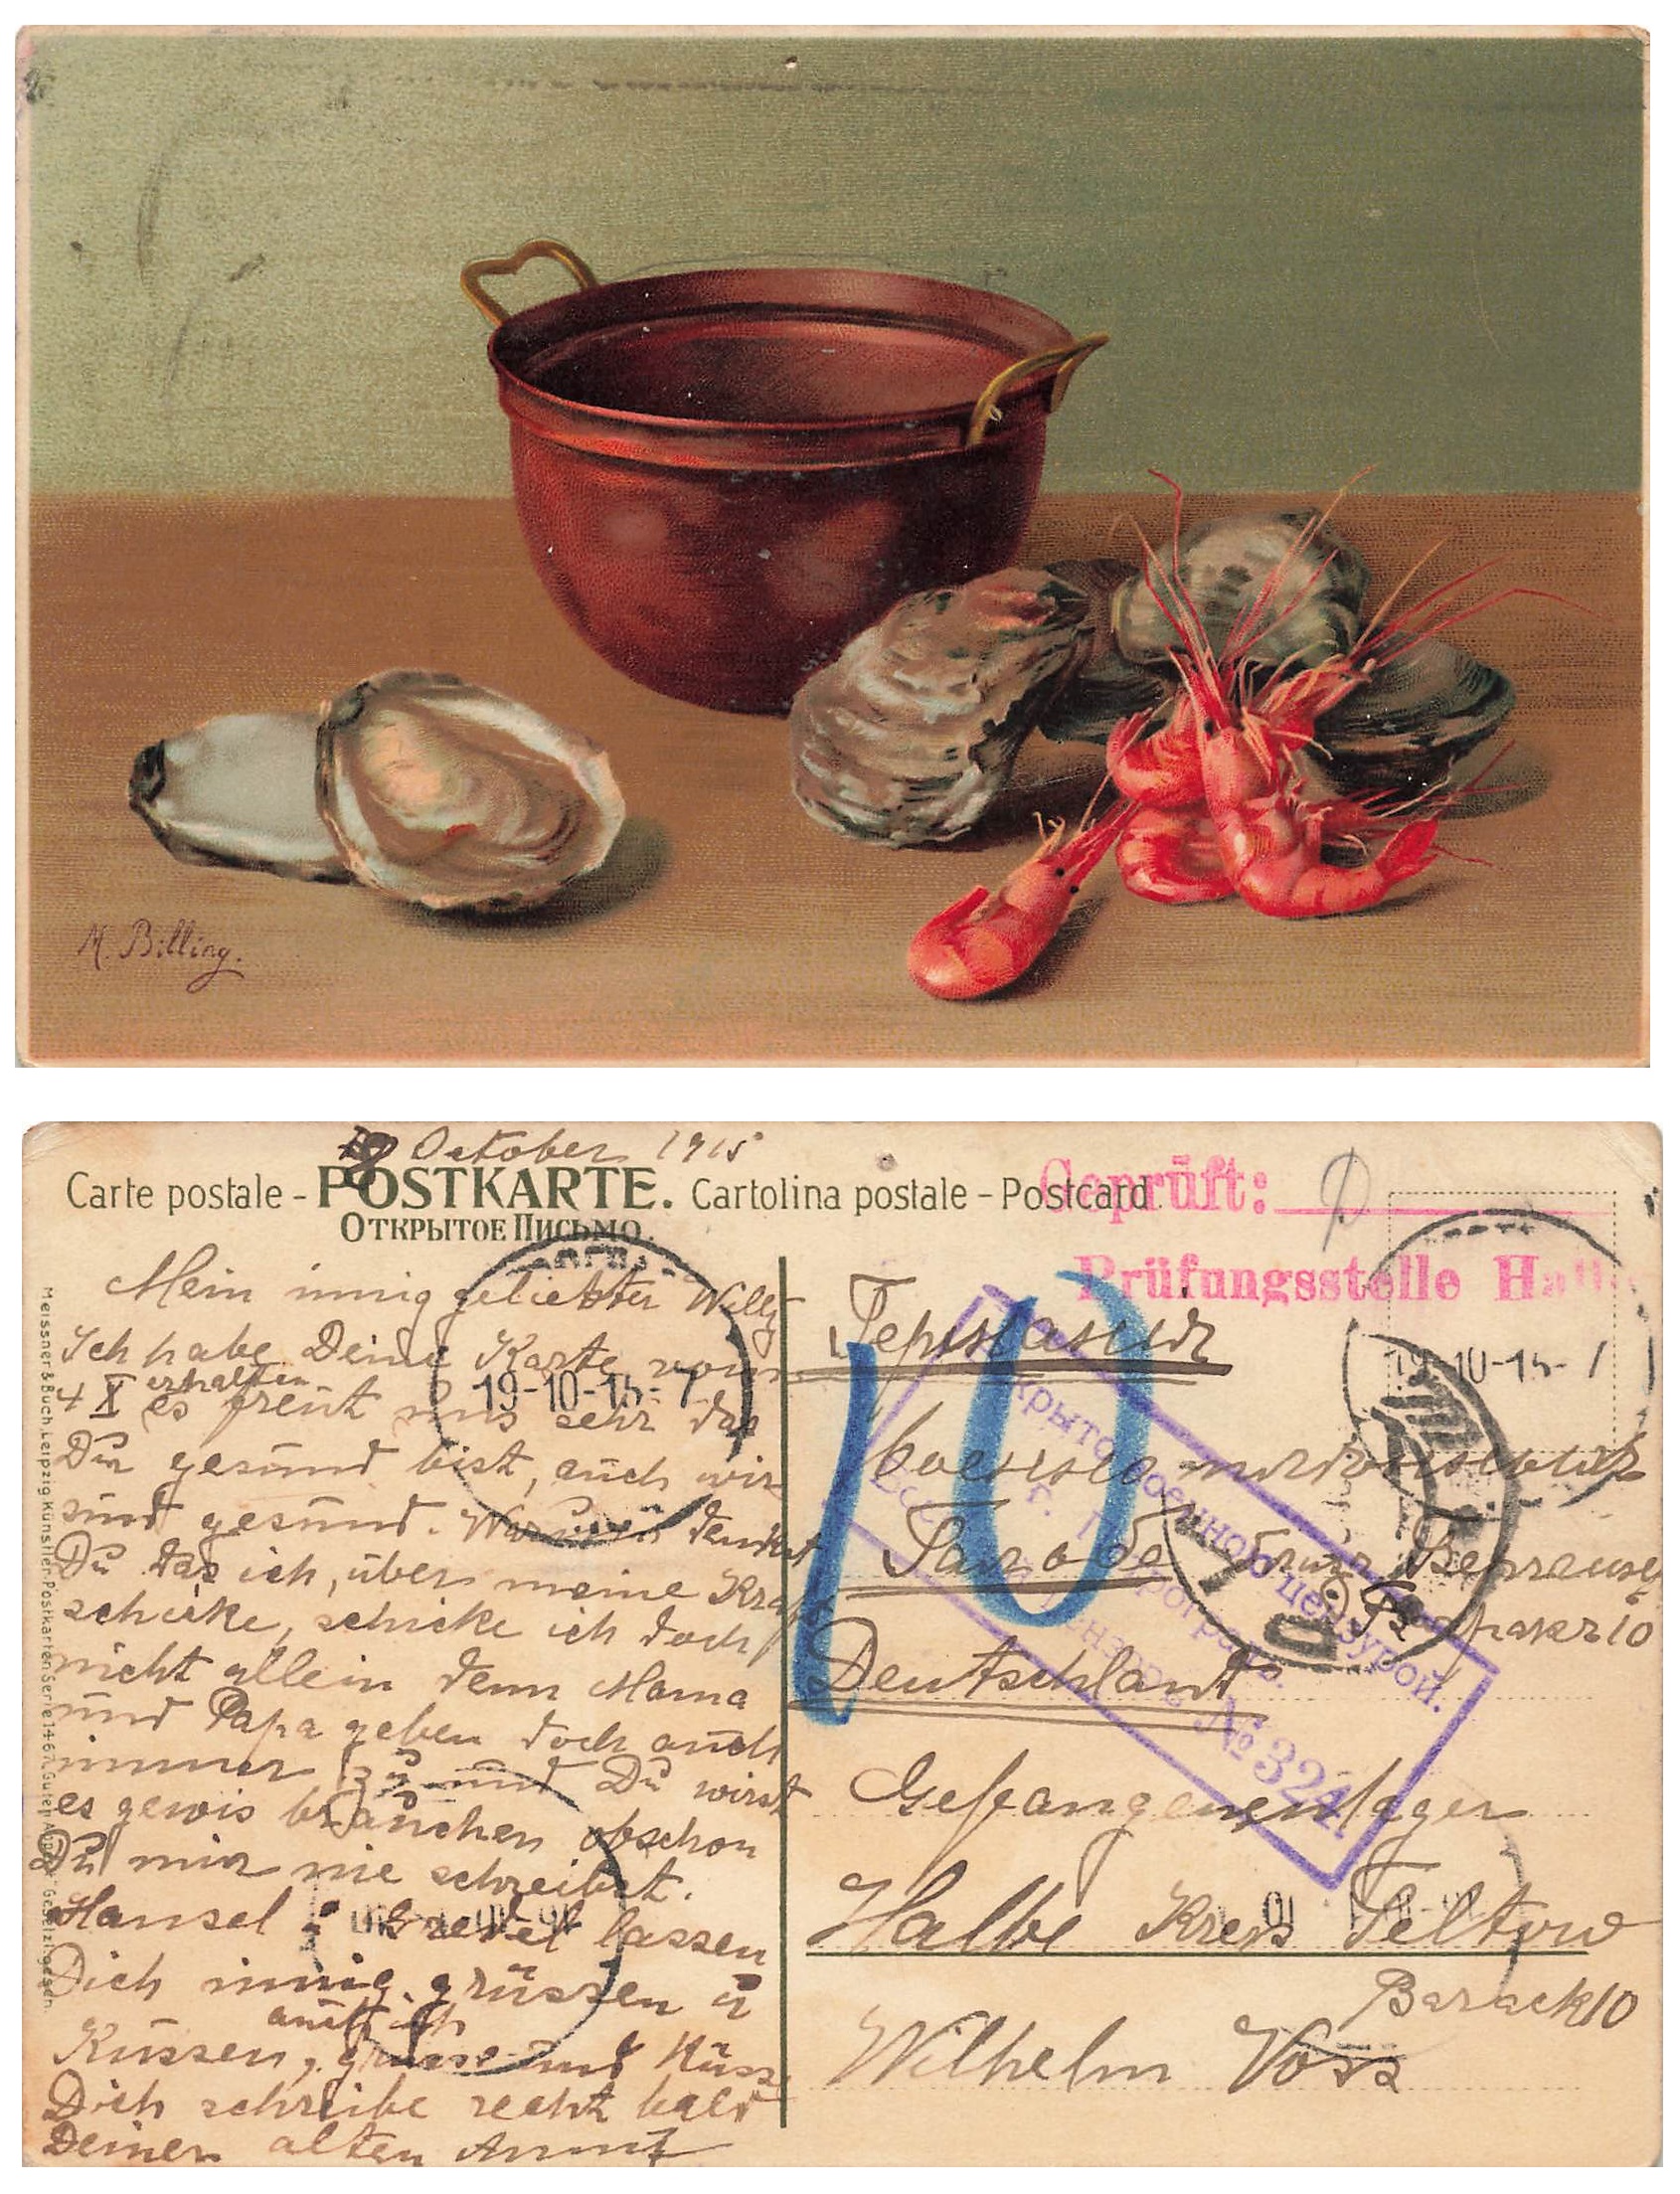 M. Billing.
October 1915
Carte postale - POSTKARTE. Cartolina postale - Postcard
ОТКРЫТОЕ ПИСЬМО.
Geprüft:
Prüfungsstelle
Mein innig geliebter Willy
Ich habe Deine Karte vom
4 X erhalten es freut uns sehr das
Du gesund bist, auch wir
sind gesund. Warum denkst
Du das ich, über meine Kraft
schicke, schicke ich doch
nicht allein denn Mama
und Papa geben doch auch
immer zu und Du wirst
es gewis brauchen obschon
Du mir nie schreibst.
Hansel u Gretel lassen
Dich innig grüssen u
Küssen, auch ich grüsse und Küss
Dich schreibe recht bald
Deiner alten
19-10-15-7
Германия
военно
Barack 10
Deutschland
Gefangenenlager
Halbe Kreis Teltow
Barack 10
Wilhelm Voss
10
19-10-15-7
военной цензурой.
№ 324.
Meissner & Buch, Leipzig. Künstler-Postkarten Serie 1467. "Guten Appetit" Gesetzl. gesch.